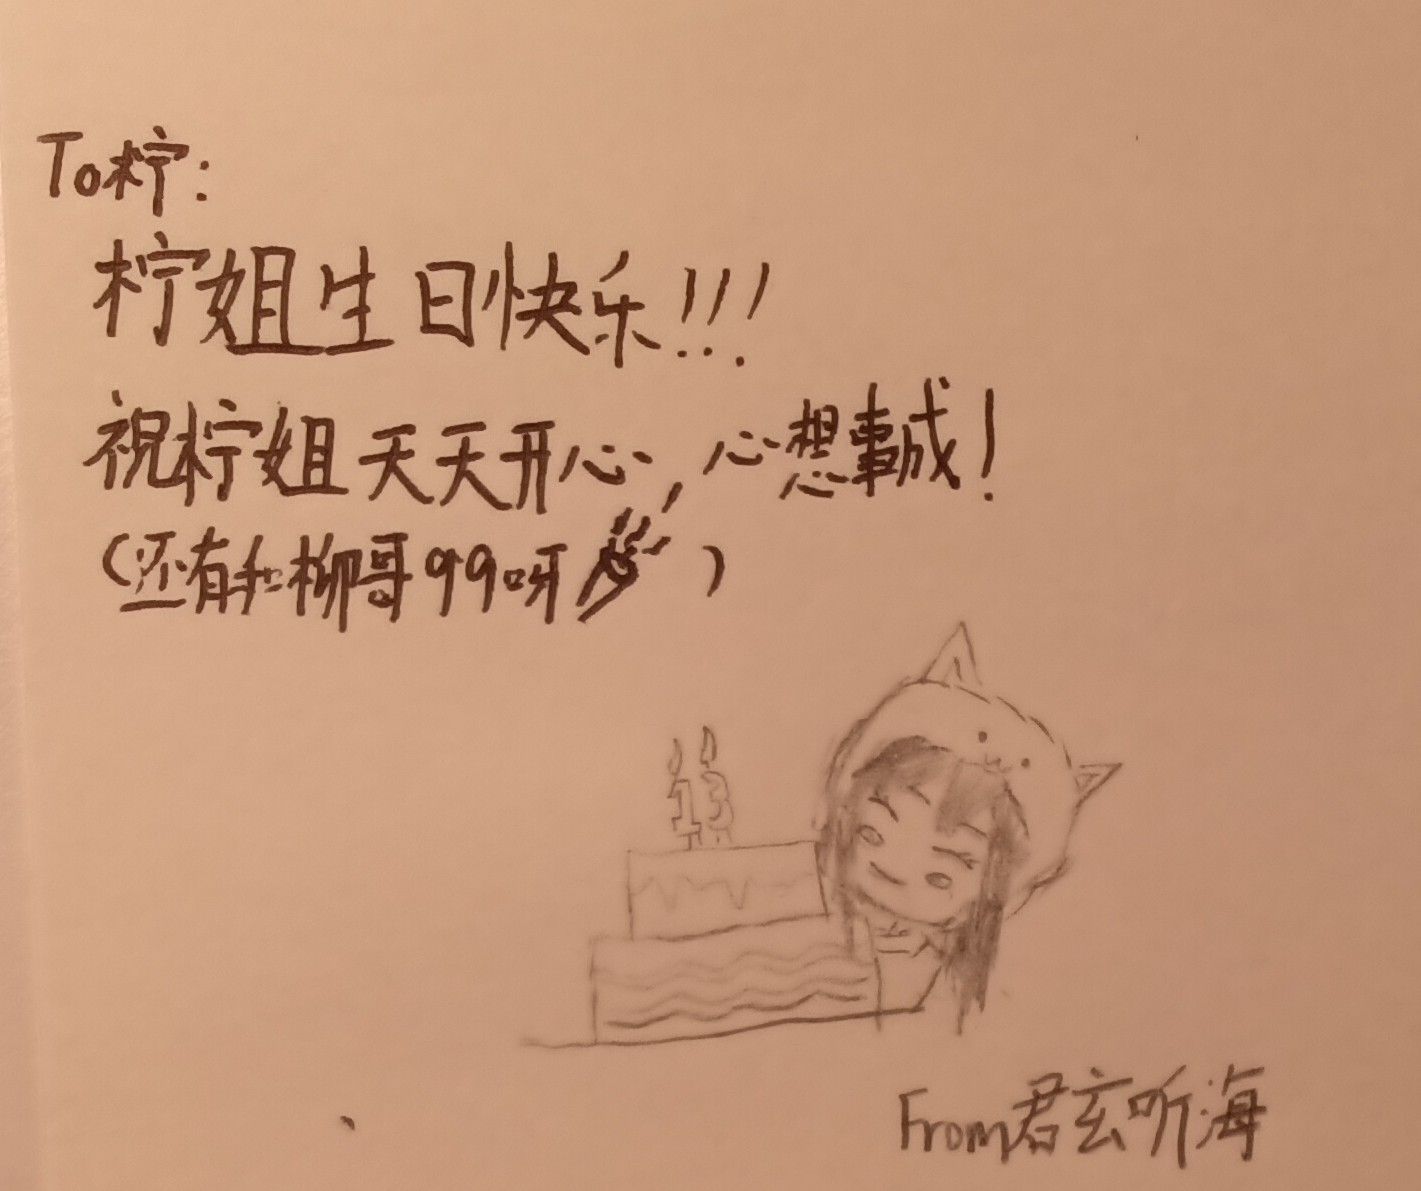 To柠:
柠姐生日快乐!!!
祝柠姐天天开心,心想事成!
(还有和柳哥99呀)
13
From君玄听海